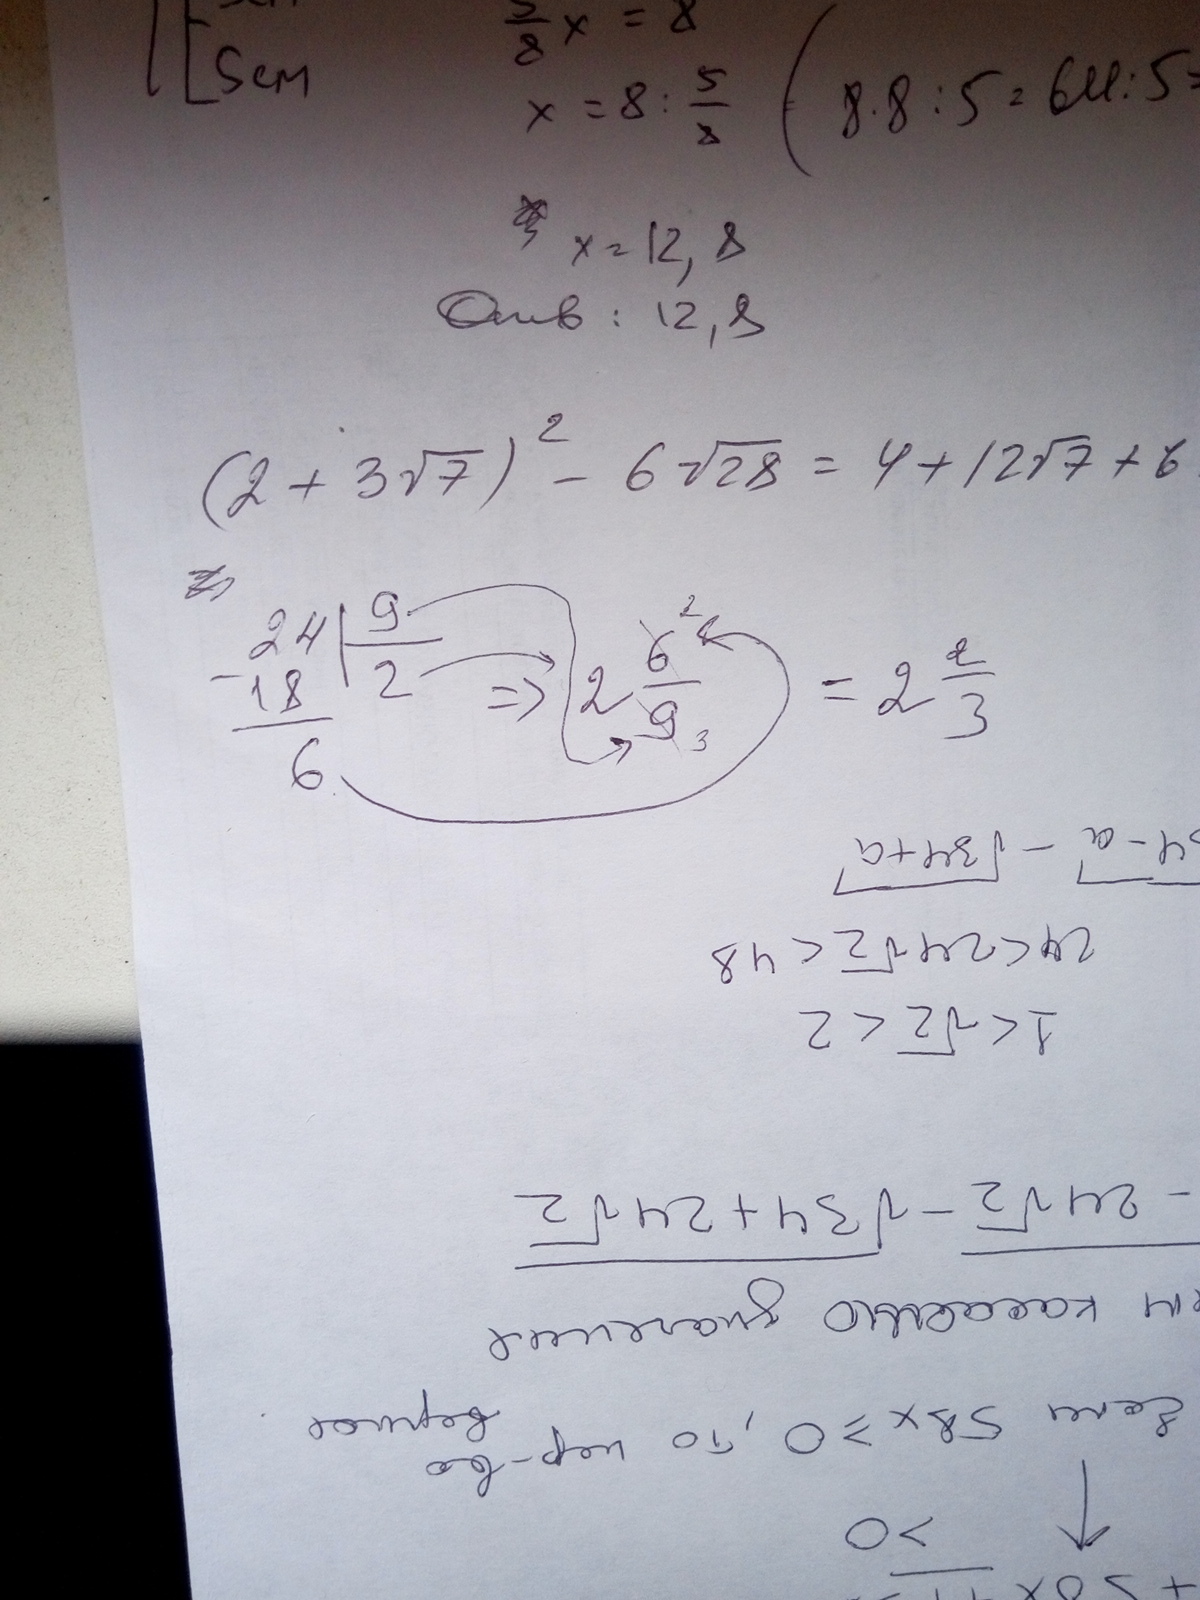 5см
5/8 x = 8
x = 8 : 5/8 ( 8·8:5=64:5=
x=12,8
Отв: 12,8
(2+3√7)² - 6√28 = 4+12√7+6
24 | 9
-18 | 2
6
=> 2 6²/9₃ = 2 2/3
34-a - √34+a
24<24√2<48
1<√2<2
- 24√2 - √34+24√2
если 58x≥0, то нер-во
верное
>0